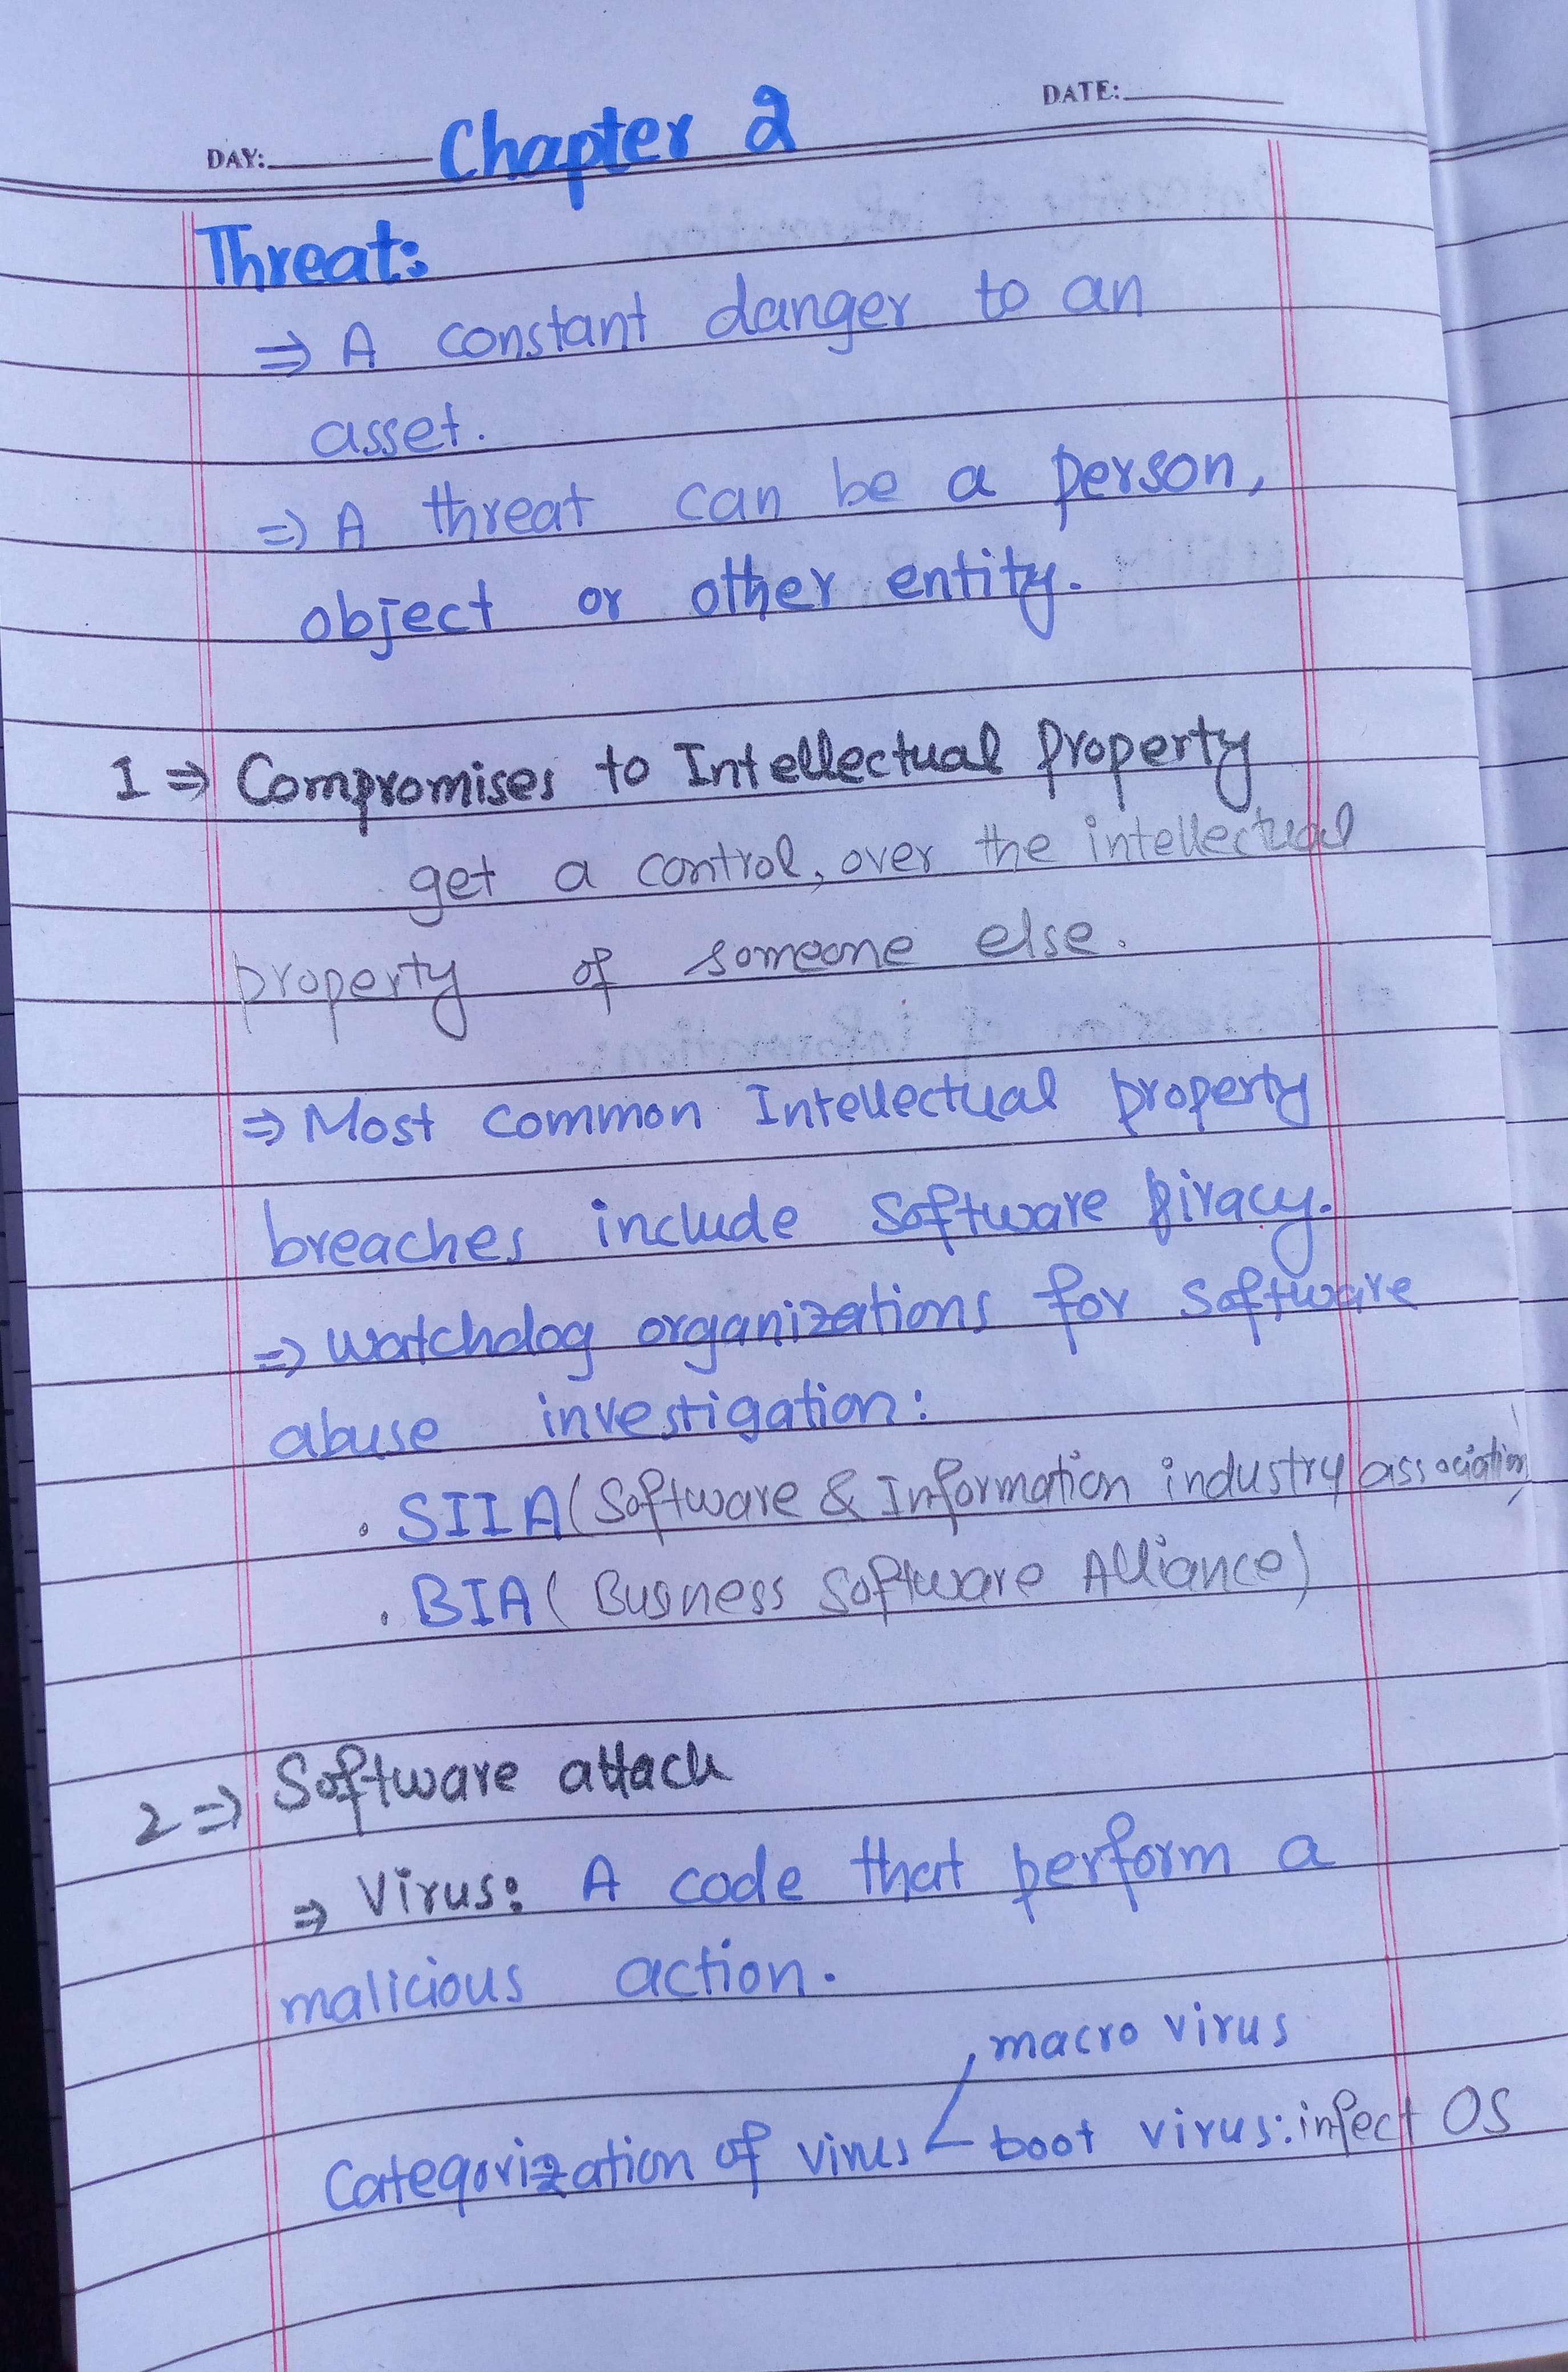 DATE:
DAY: Chapter 2
Threat:
⇒ A constant danger to an
asset.
⇒ A threat can be a person,
object or other entity.
1 ⇒ Compromises to Intellectual property
get a control, over the intellectual
property of someone else.
⇒ Most common Intellectual property
breaches include Software piracy.
⇒ Watchdog organizations for Software
abuse investigation:
. SIIA (Software & Information industry association)
. BIA ( Busness Software Alliance)
2 ⇒ Software attack
⇒ Virus: A code that perform a
malicious action.
macro virus
Categorization of virus boot virus: infect OS